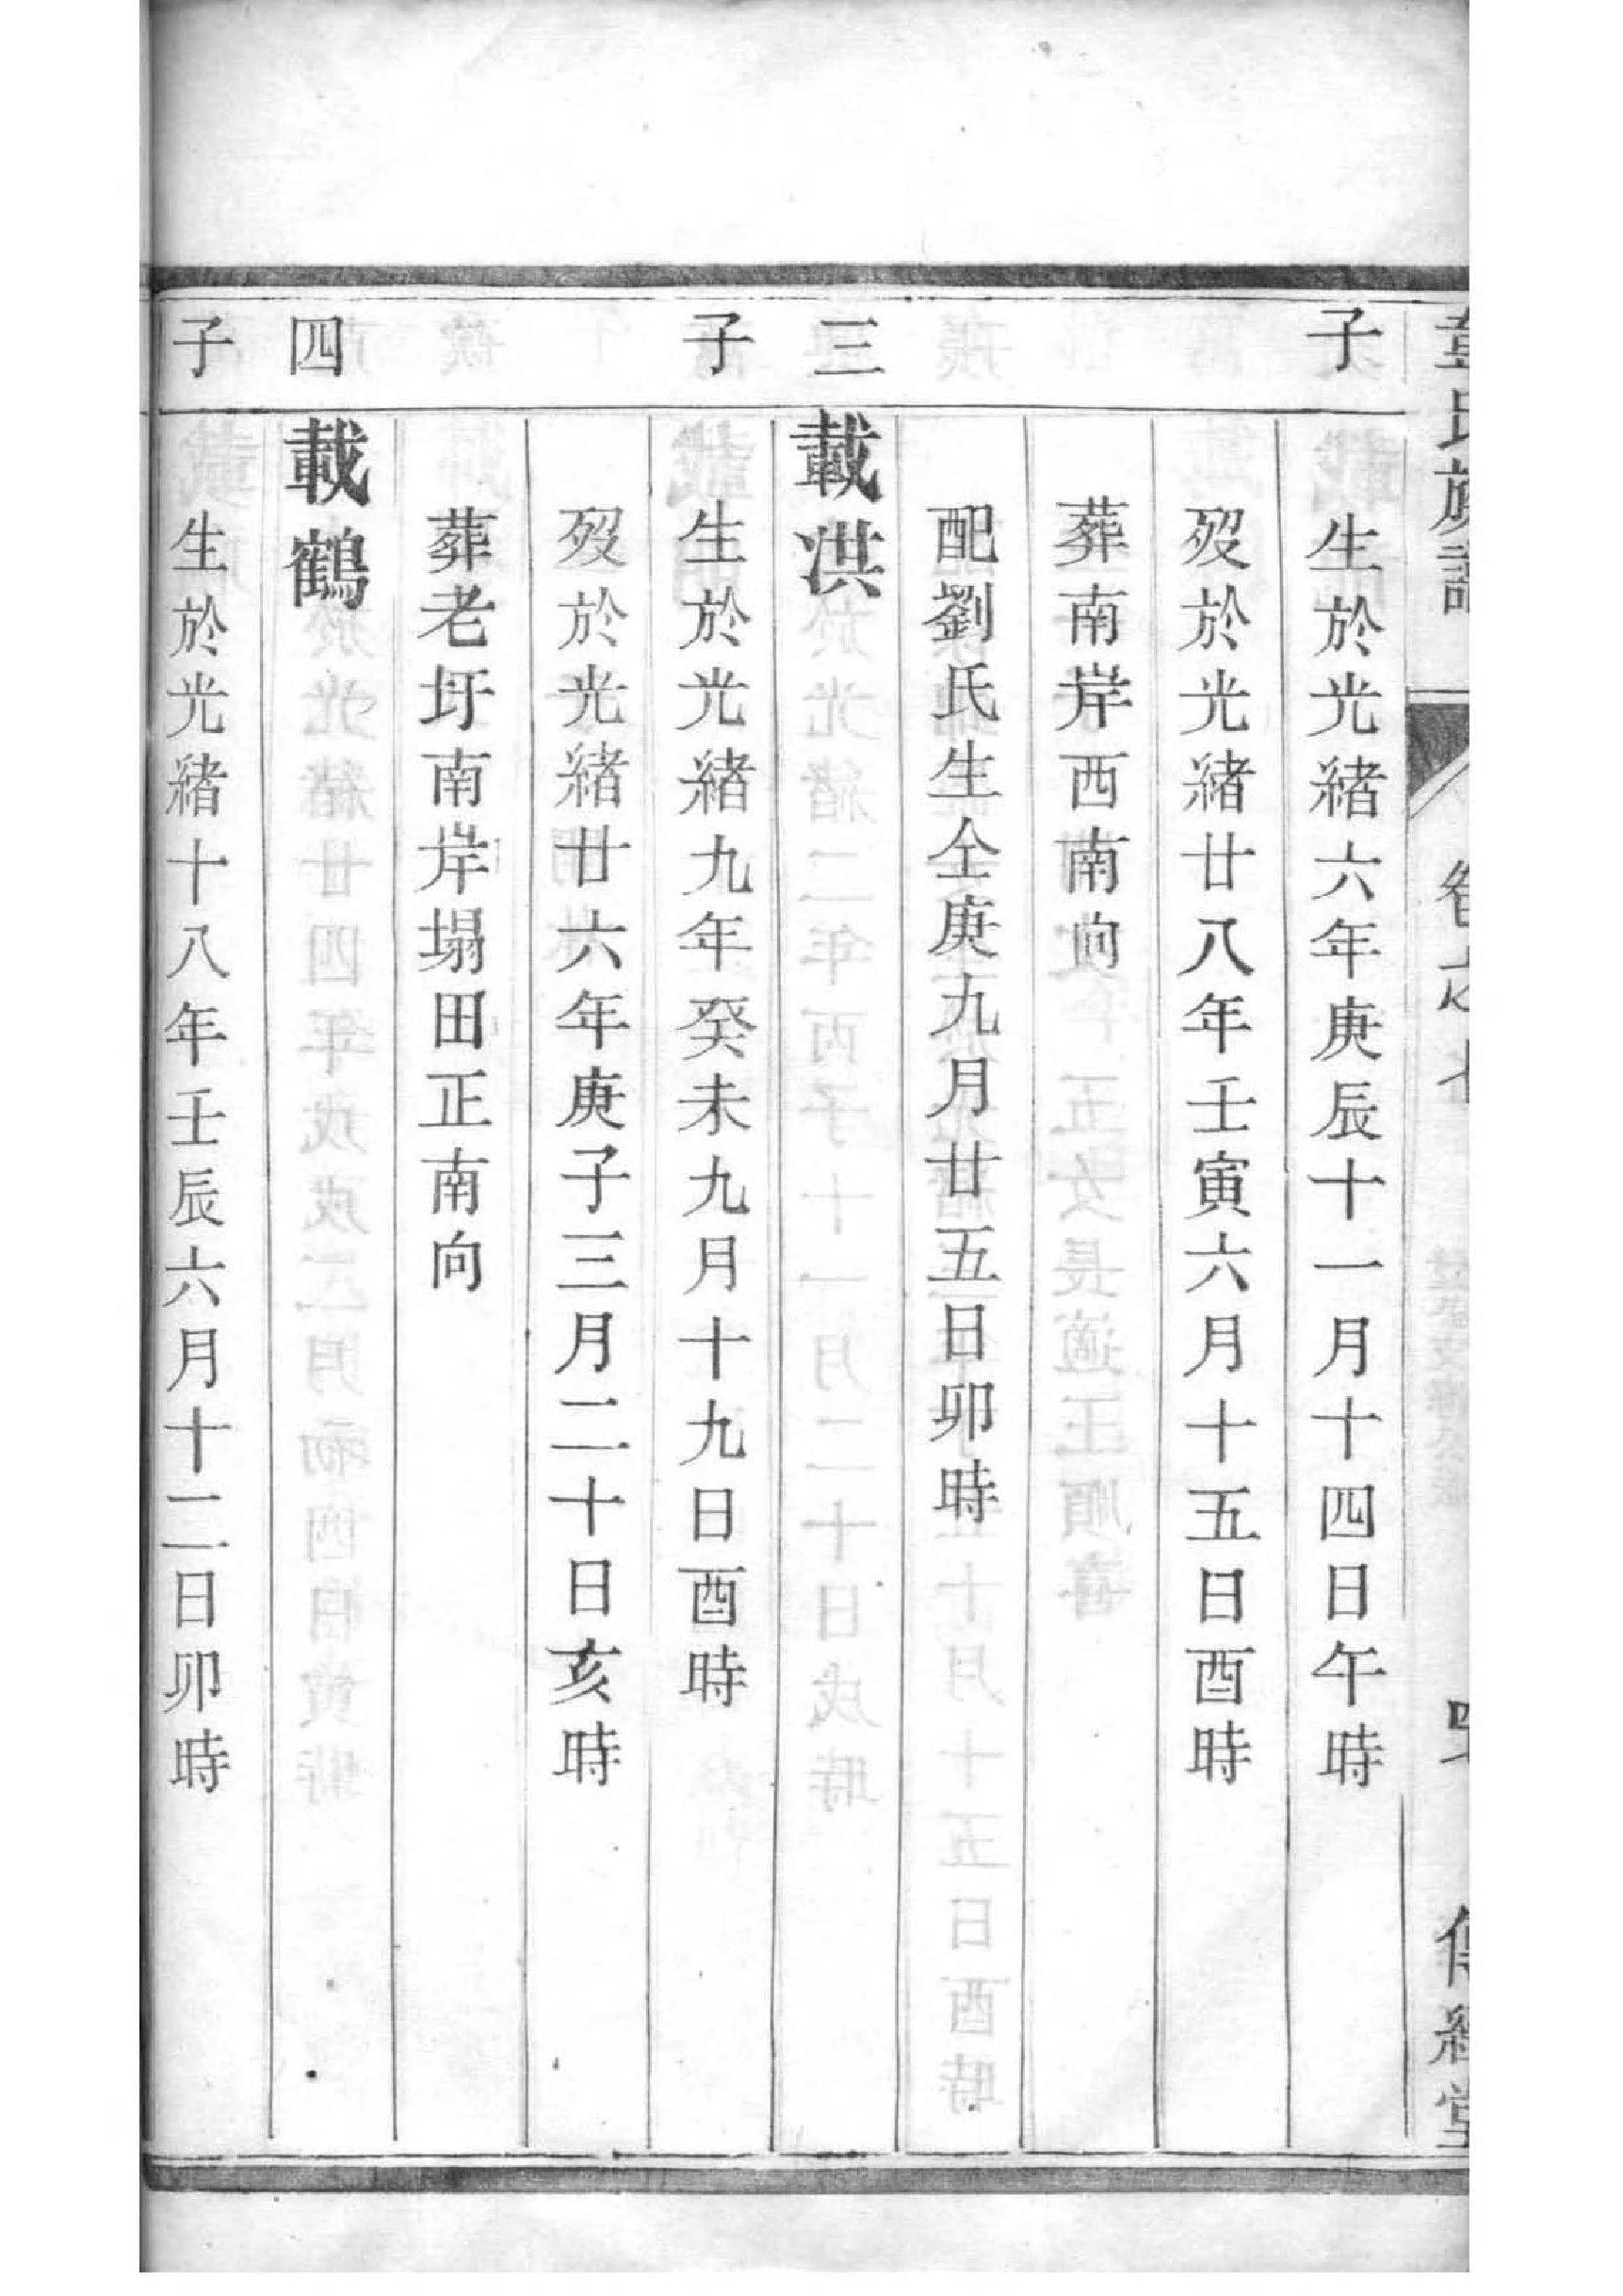 子
生於光緒六年庚辰十一月十四日午時
歿於光緒廿八年壬寅六月十五日酉時
葬南岸西南向
配劉氏生仝庚九月廿五日卯時
三 載洪
子 生於光緒九年癸未九月十九日酉時
歿於光緒廿六年庚子三月二十日亥時
葬老圩南岸塌田正南向
四 載鶴
子 生於光緒十八年壬辰六月十二日卯時